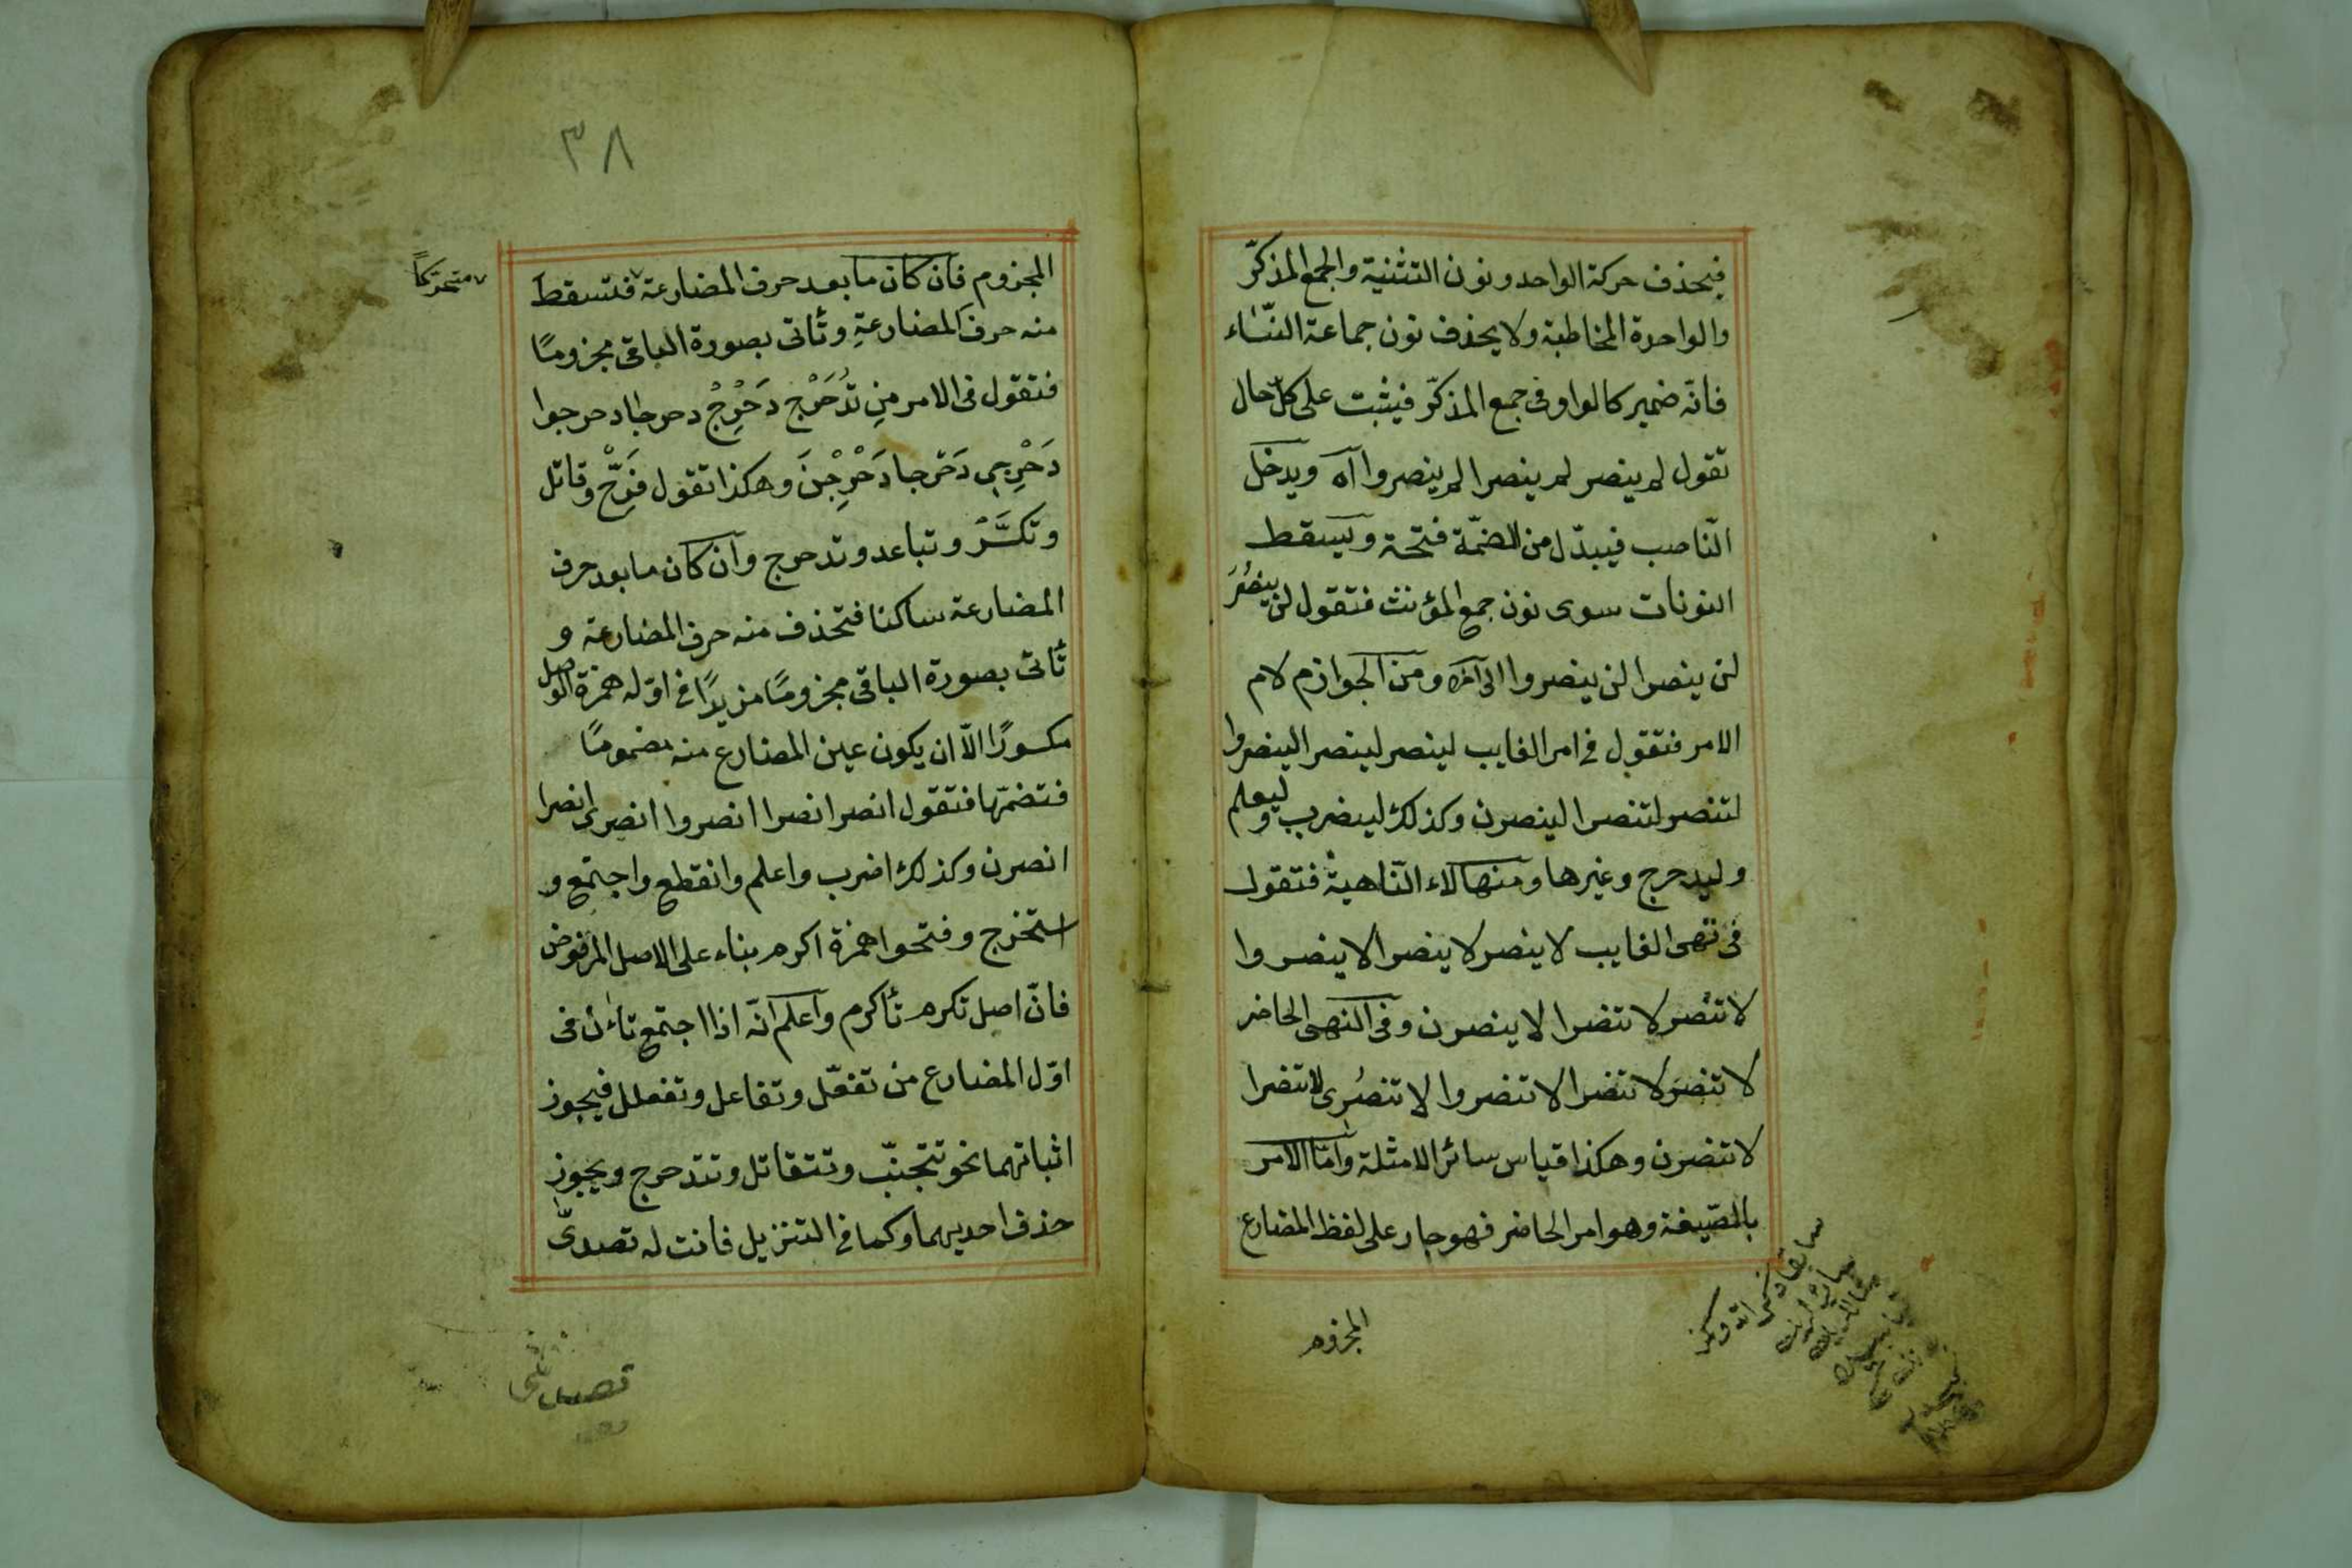 فيحذف حركة الواحد و نون التثنية والجمع المذكّر
والواحدة المخاطبة ولا يحذف نون جماعة النّساء
فانّه ضمير كالواو فى جمع المذكّر فيثبت على كلّ حال
تقول لم ينصر لم ينصرا لم ينصروا اه ويدخل
النّاصب فيبدّل من الضمّة فتحة ويسقط
النونات سوى نون جمع المؤنث فتقول لن ينصُرَ
لن ينصرا لن ينصروا الى آخره ومن الجوازم لام
الامر فتقول فى امر الغايب لينصر لينصرا لينصروا
لتنصر لتنصرا لينصرن وكذلك ليضرب وليعلم
وليدحرج وغيرها ومنها لاء النّاهية فتقول
فى نهى الغايب لا ينصر لا ينصرا لا ينصروا
لا تنصر لا تنصرا لا ينصرن وفى النهى الحاضر
لا تنصر لا تنصرا لا تنصروا لا تنصُرى لا تنصرا
لا تنصرن وهكذا قياس سائر الامثلة وامّا الامر
بالصّيغة وهو امر الحاضر فهو جار على لفظ المضارع
المجزوم
٣٨
المجزوم فان كان ما بعد حرف المضارعة فتسقط
متحركاً
منه حرف المضارعةِ وتأتى بصورة الباقى مجزومًا
فتقول فى الامر من تُدَحْرِج دَحْرِجْ دحرجا دحرجوا
دَحْرِجى دَحرجا دَحْرِجْنَ وهكذا تقول فَرِّحْ وقاتل
وتكسَّرْ وتباعد وتدحرج وان كان ما بعد حرف
المضارعة ساكنا فتحذف منه حرف المضارعة و
تأتى بصورة الباقى مجزومًا مزيدًا فى اوّله همزة الوصل
مكسورًا الاّ ان يكون عين المضارع منه مضمومًا
فتضمّها فتقول انصر انصرا انصروا انصرى انصرا
انصرن وكذلك اضرب واعلم وانقطع واجتمع و
استخرج وفتحوا همزة اكرم بناء على الاصل المرفوض
فانّ اصل تكرم تأكرم واعلم انّه اذا اجتمع تاءان فى
اوّل المضارع من تفعّل وتفاعل وتفعلل فيجوز
اثباتهما نحو تتجنّب وتتقاتل وتتدحرج ويجوز
حذف احديهما وكما فى التنزيل فانت له تصدىّ